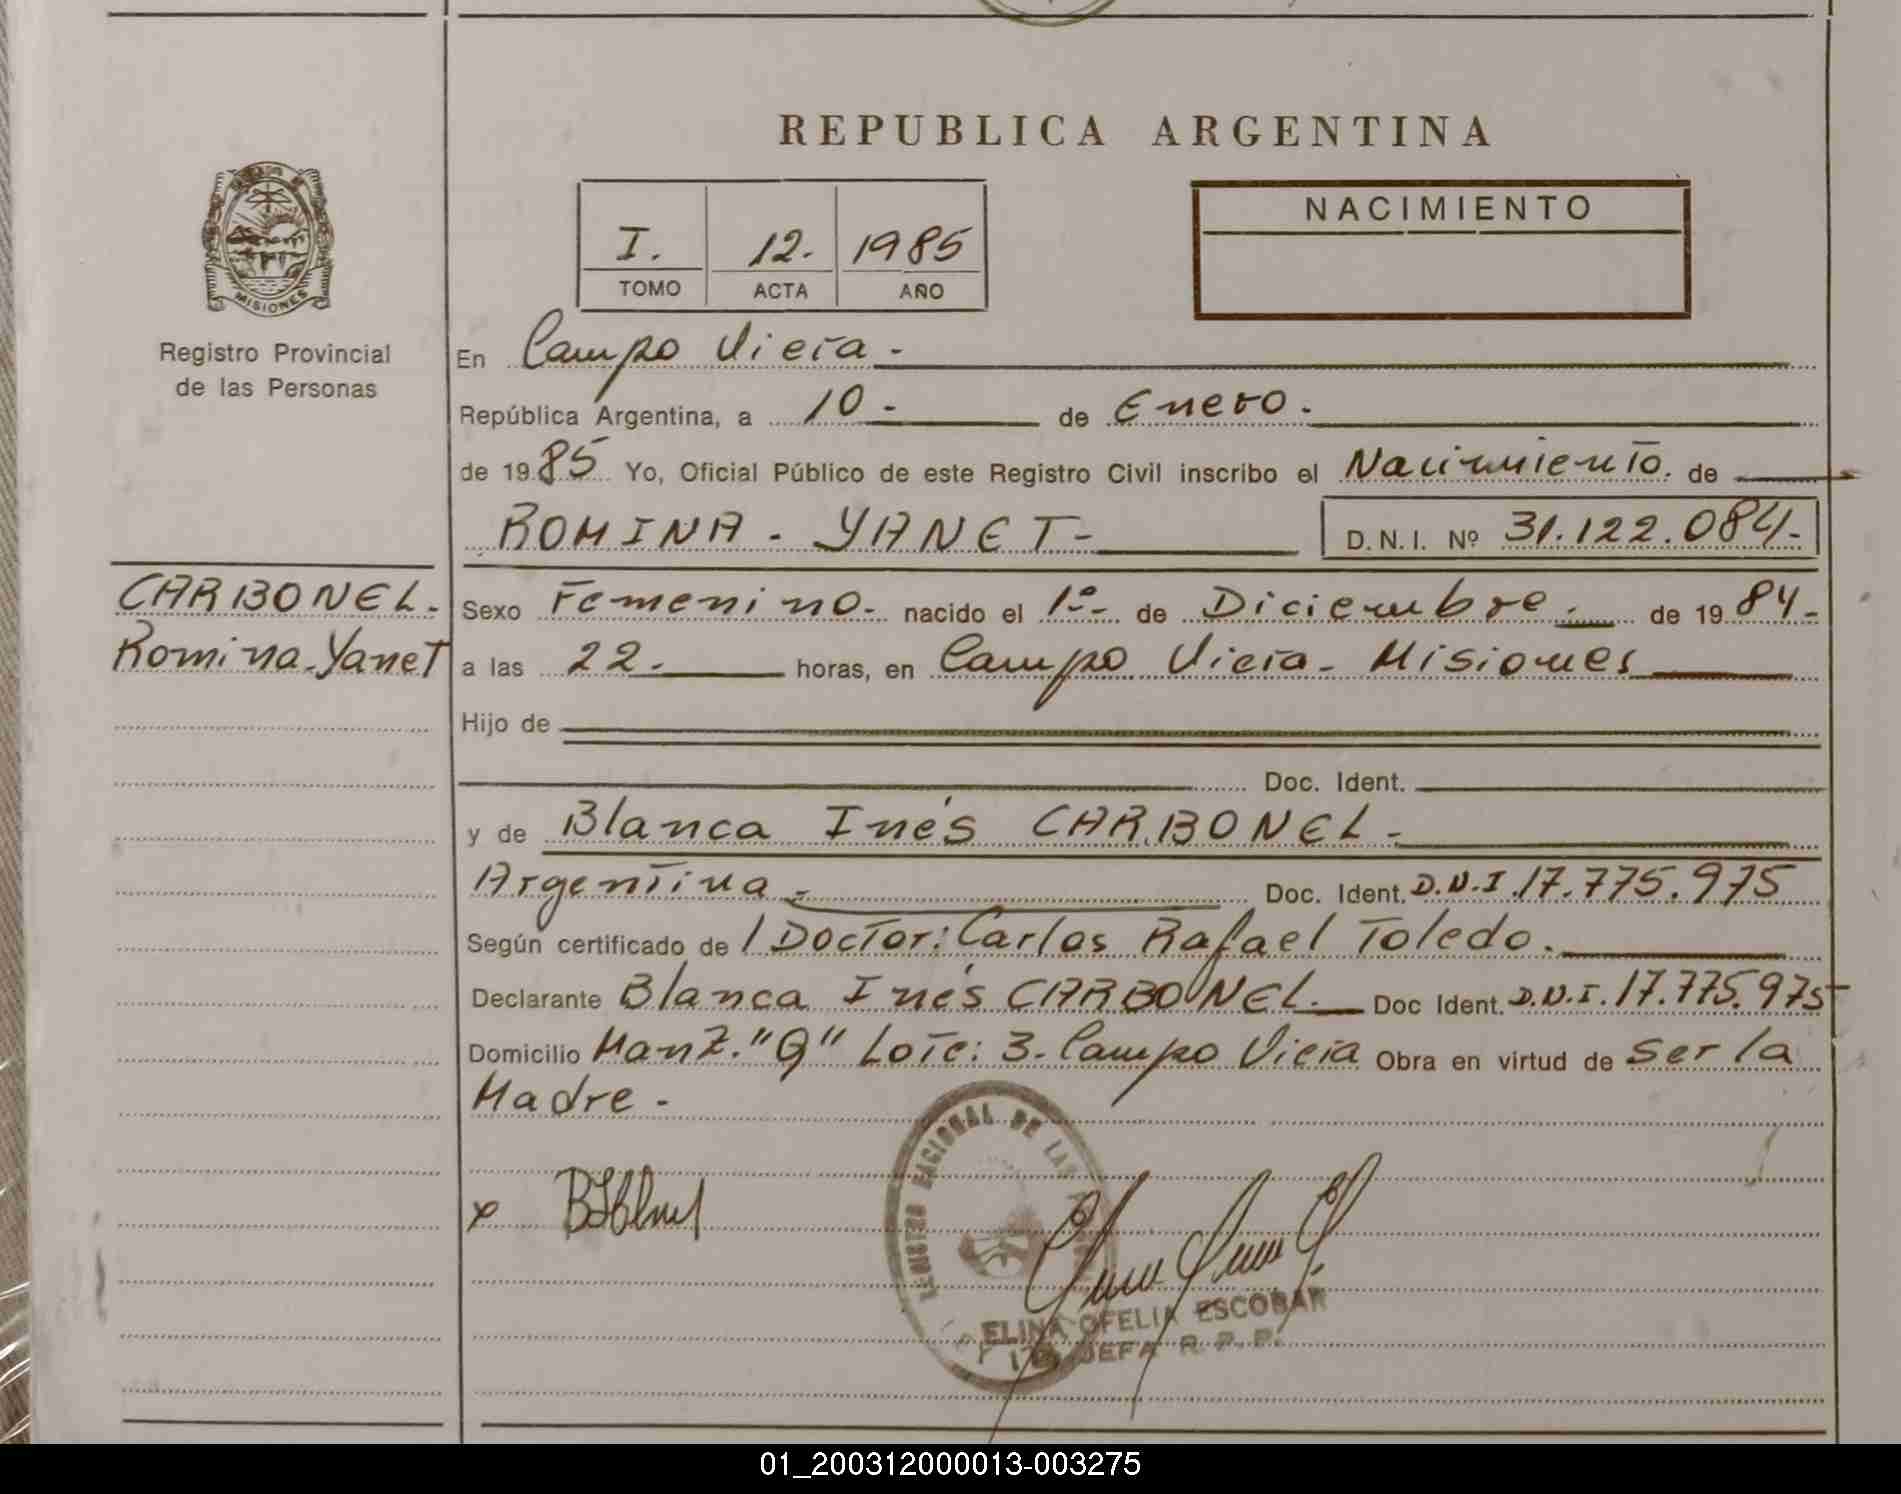 REPUBLICA ARGENTINA
I. 12. 1985
TOMO ACTA AÑO
NACIMIENTO
MISIONES
Registro Provincial
de las Personas
CARBONEL.
Romina-Yanet
En Campo Viera -
República Argentina, a 10 - de Enero.
de 1985 Yo, Oficial Público de este Registro Civil inscribo el Nacimiento. de
ROMINA - YANET - D.N.I. Nº 31.122.084.-
Sexo Femenino. nacido el 1º- de Diciembre. de 1984-
a las 22. horas, en Campo Viera - Misiones
Hijo de
Doc. Ident.
y de Blanca Inés CARBONEL -
Argentina - Doc. Ident. D.N.I. 17.775.975
Según certificado de / Doctor: Carlos Rafael Toledo.
Declarante Blanca Inés CARBONEL. Doc Ident. D.N.I. 17.775.975-
Domicilio Manz. "Q" Lote: 3. Campo Viera Obra en virtud de ser la
Madre -
x
NACIONAL DE LAS
ELINA OFELIA ESCOBAR
JEFA R.P.P.
01_200312000013-003275